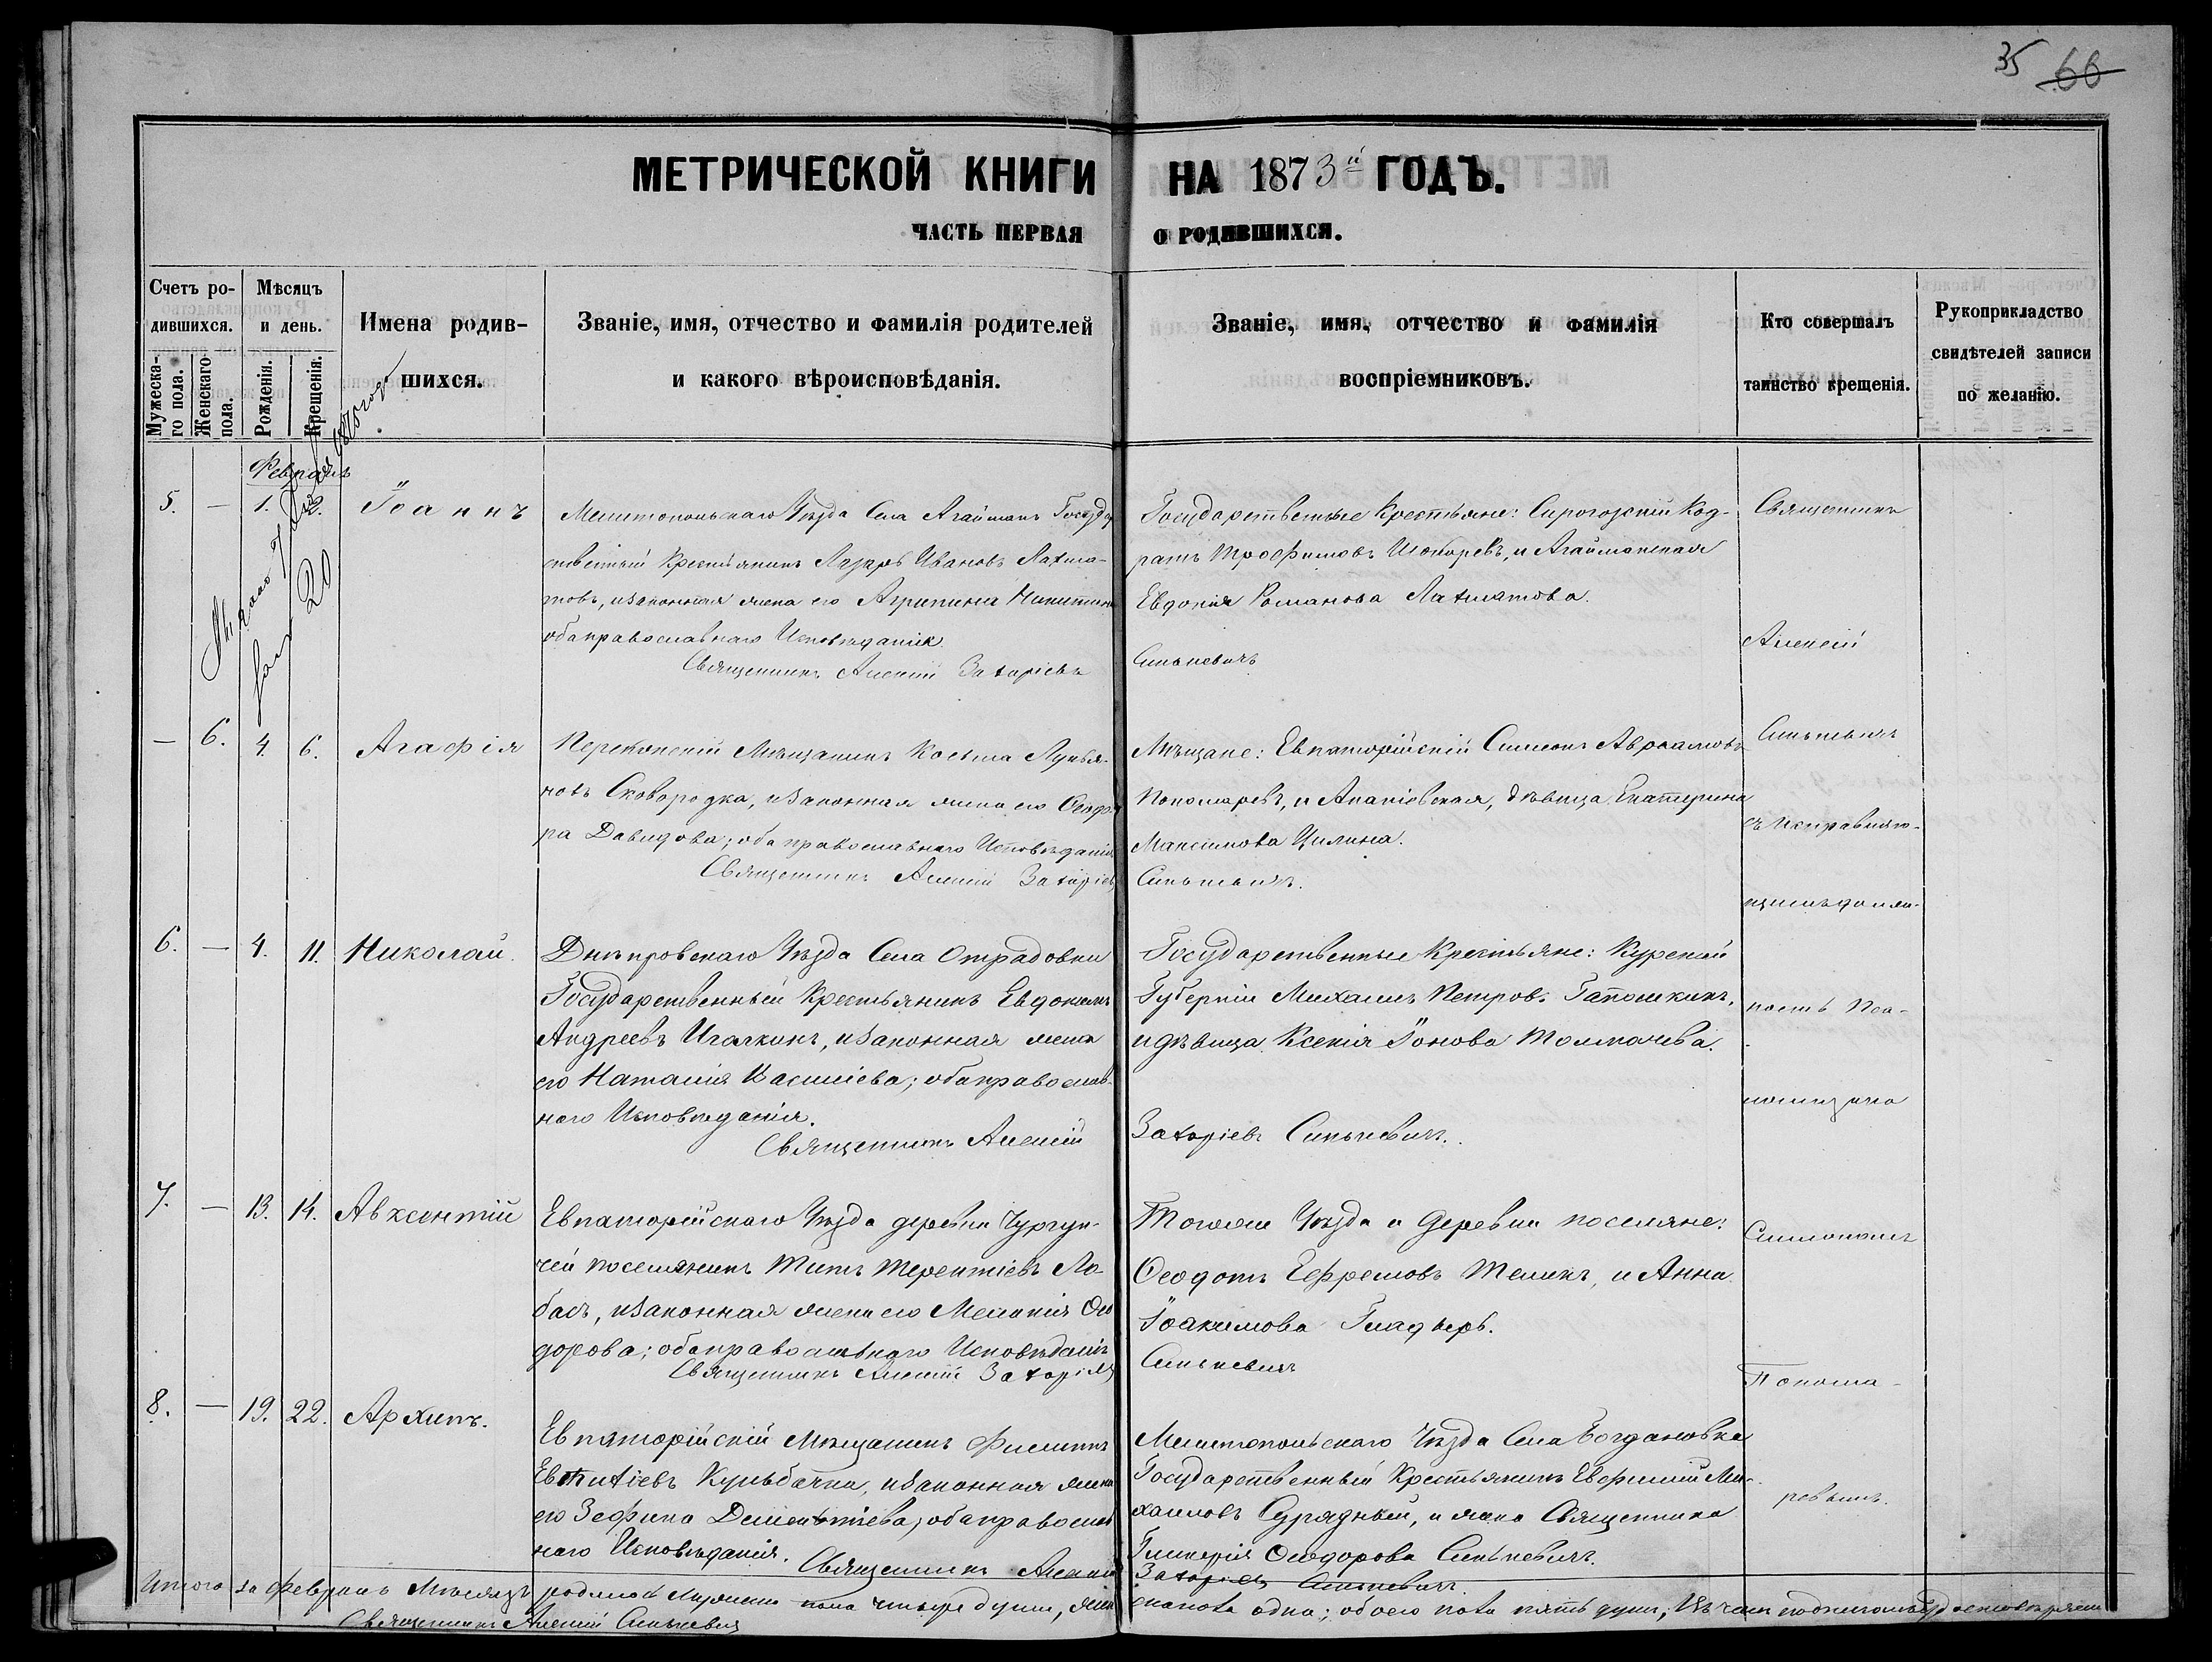 35 66
МЕТРИЧЕСКОЙ КНИГИ НА 1873й ГОДЪ.
ЧАСТЬ ПЕРВАЯ О РОДИВШИХСЯ.
Счетъ ро-
дившихся.
Мужеска-
го пола.
Женскаго
пола.
Мѣсяцъ
и день.
Рожденія.
Крещенія.
Имена родив-
шихся.
Званіе, имя, отчество и фамилія родителей
и какого вѣроисповѣданія.
Званіе, имя, отчество и фамилія
воспріемниковъ.
Кто совершалъ
таинство крещенія.
Рукоприкладство
свидѣтелей записи
по желанію.
Февраль
1875 года
20
5. — 1. 2. Іоаннъ
Мелитопольскаго Уѣзда Села Агайманъ Государ
ственный Крестьянинъ Лазарь Ивановъ Лахма-
товъ, и законная жена его Агрипина Никитина
оба православнаго Исповѣданія.
Священникъ Алексій Захаріевъ
Государственные Крестьяне: Сирогозскій Код-
ратъ Трофимовъ и Агайманская
Евдокія Романова Лахматова.
Синькевичъ
— 6. 4. 6. Агафія
Перекопскій Мѣщанинъ Косьма Лукья-
новъ Сковородка, и законная жена его Феодо
ра Давидова; оба православнаго Исповѣданія
Священникъ Алексій Захаріевъ
Мѣщане: Евпаторійскій Симеонъ Авраамовъ
Пономаревъ, и Ананіевская, дѣвица Екатерина
Максимова Цилина.
Синькевичъ.
6. — 4. 11. Николай.
Днѣпровскаго Уѣзда Села Отрадовки
Государственный Крестьянинъ Евдокимъ
Андреевъ Игалкинъ, и законная жена
его Наталія Василіева; оба православ-
наго Исповѣданія.
Священникъ Алексій
Государственные Крестьяне: Курской
Губерніи Михаилъ Петровъ Гапошкинъ,
и дѣвица Ксенія Іонова Толмачева.
Захаріевъ Синькевичъ.
7. — 13. 14. Авксентій
Евпаторійскаго Уѣзда деревни Чургун-
чей поселянинъ Титъ Терентіевъ Ло-
басъ, и законная жена его Меланія Фео
дорова; оба православнаго Исповѣданія
Священникъ Алексій Захаріевъ
Тогоже Уѣзда и Деревни поселяне:
Феодотъ Ефремовъ Теликъ, и Анна
Іоакимова Гладырь.
Синькевичъ
8. — 19. 22. Архипъ.
Евпаторійскій Мѣщанинъ Филиппъ
Евтихіевъ Кульбачка, и законная жена
его Зефина Дементіева; оба православ
наго Исповѣданія. Священникъ Алексій
Мелитопольскаго Уѣзда Села Богдановка
Государственный Крестьянинъ Евфимій Ми-
хаиловъ Сурядный, и жена Священника
Гликерія Феодорова Синькевичъ.
Захаріевъ Синькевичъ.
Священникъ
Алексій
Синькевичъ
съ исправляю-
щимъ должн-
ность Пса-
ломщика
Симеономъ
Понома-
ревымъ.
Итого за Февраль Мѣсяцъ родилось мужеска пола четыре души, жен
скаго одна; обоего пола пять душъ; Въ чемъ подписомъ удостовѣряемъ
Священникъ Алексій Синькевичъ